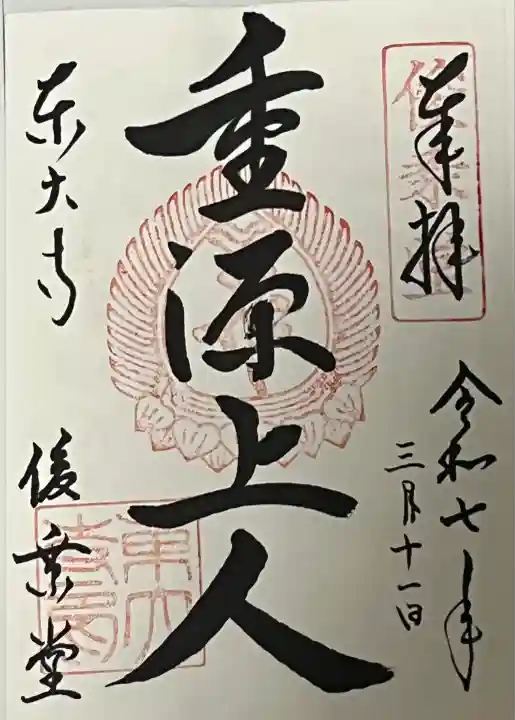 奉拝
俊乗堂
令和七年
三月十一日
重源上人
東大寺
俊乗堂